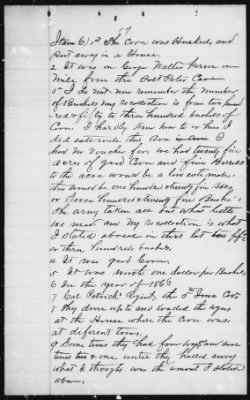 9
Item 6) 1st The Corn was Husked, and
put away in a House.
2 It was on Farm one
Mile from the
3 I do not now remember the Number
of Bushels my recollection is from two hund
red & fifty to three hundred bushels of
Corn. I hardly know how to or this I
did estimate this Corn
had no voucher for. we had twenty five
acres of good Corn and five Barrels
to the acre would be a low estimate.
this would be one hundred & twenty five
or Seven hundred & twenty five Bushels
The army taken all but what little
we used and my recollection is what
I stated above is that but two fifty
or three hundred bushels.
4 It was good Corn.
5 It was worth one dollar per Bushel.
6 In the year of 186
7 Col Patrick Regint, the 5th Iowa Cols
8 They drove up to and loaded the wagons
at the House where the Corn was.
at diferent times,
9 Some times they had four wagons and some
times two & one until they hauled away
what I thought was the amount I stated
above.